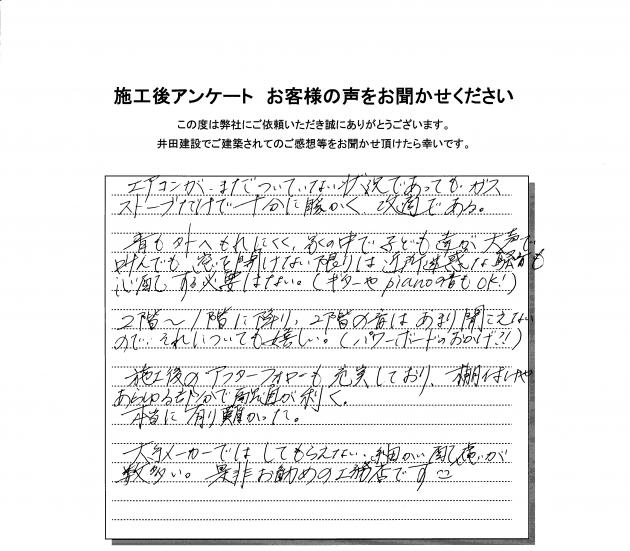 施工後アンケート お客様の声をお聞かせください
この度は弊社にご依頼いただき誠にありがとうございます。
井田建設でご建築されてのご感想等をお聞かせ頂けたら幸いです。
エアコンがまだついていない状況であってもガス
ストーブだけで十分に暖かく 快適である。
音も外へもれにくく、家の中で子ども達が大声で
叫んでも、窓を開けない限りは近所迷惑な騒音も
心配する必要はない。(ギターやpianoの音もOK!)
2階〜1階に降り、2階の音はあまり聞こえない
ので、それについても嬉しい。(パワーボードのおかげ?!)
施工後のアフターフォローも充実しており、棚付けや
あらゆる で融通が利く。
本当に有り難かった。
大手メーカーではしてもらえない、細かい配慮が
数多い。是非お勧めの工務店です